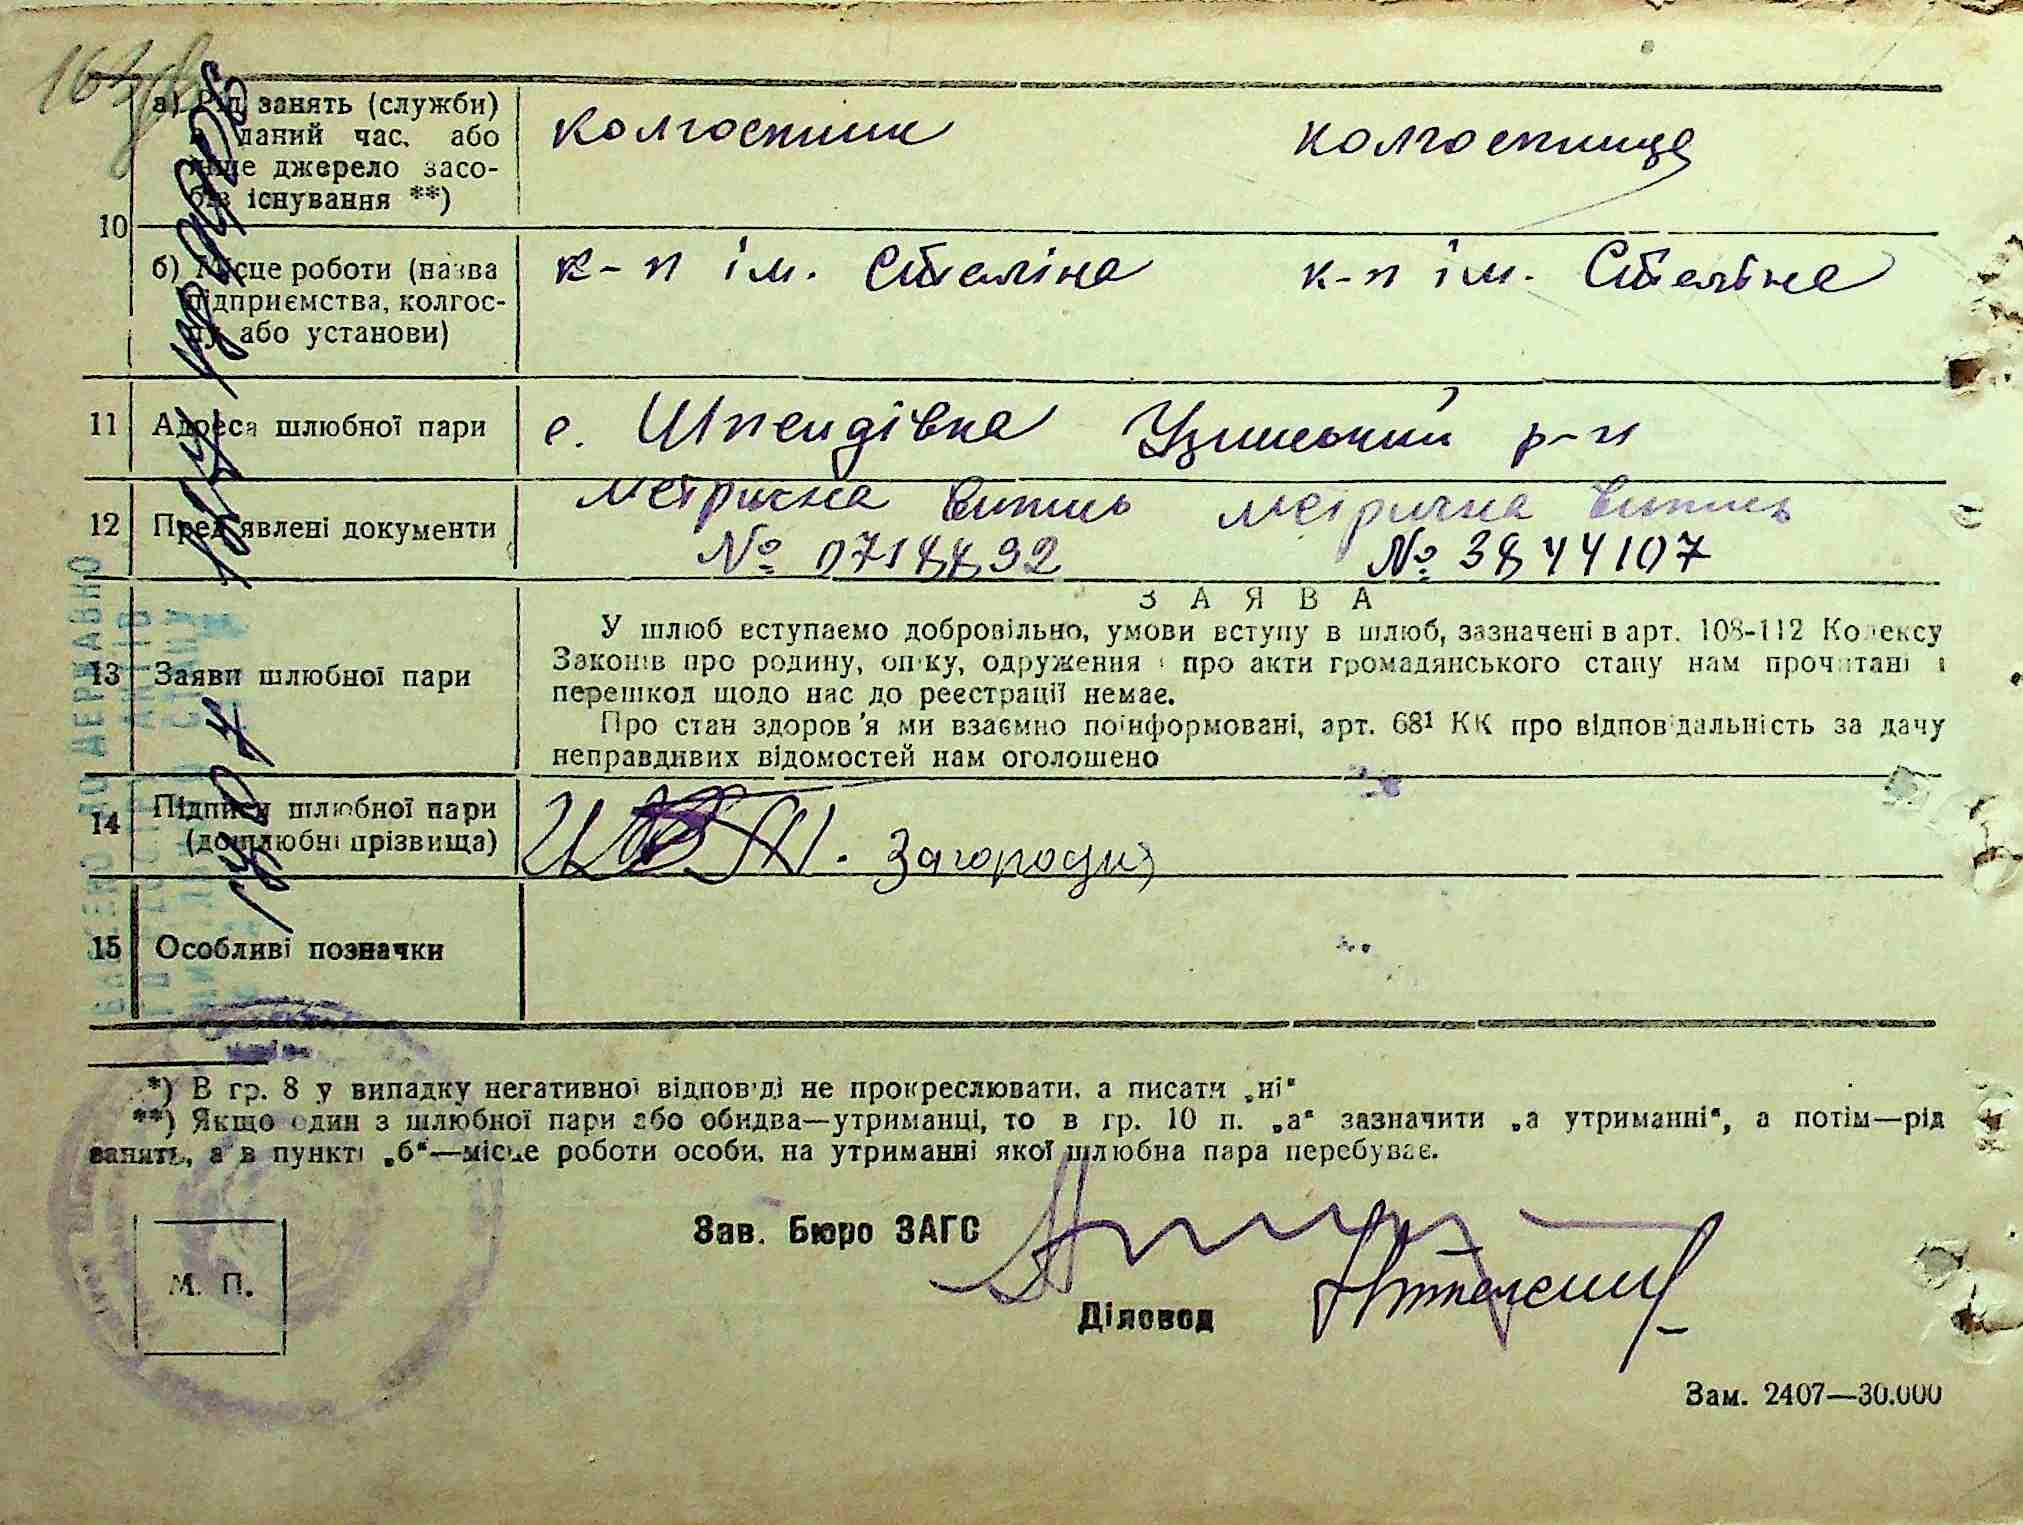 а) Рід занять (служби)
в даний час, або
інше джерело засо-
бів існування **)
колгоспник колгоспниця
10
б) Місце роботи (назва
підприємства, колгос-
пу або установи)
к-п ім. Сталіна к-п ім. Сталіна
11 Адреса шлюбної пари с. Шпендівка Узинський р-н
12 Пред'явлені документи
Метрична випись метрична випись
№ 0718892 № 3844107
З А Я В А
13 Заяви шлюбної пари
У шлюб вступаємо добровільно, умови вступу в шлюб, зазначені в арт. 108-112 Кодексу
Законів про родину, опіку, одруження і про акти громадянського стану нам прочитані і
перешкод щодо нас до реєстрації немає.
Про стан здоров'я ми взаємно поінформовані, арт. 68¹ КК про відповідальність за дачу
неправдивих відомостей нам оголошено
14 Підписи шлюбної пари
(дошлюбні прізвища)
Загородня
15 Особливі позначки
*) В гр. 8 у випадку негативної відповіді не прокреслювати, а писати „ні“
**) Якщо один з шлюбної пари або обидва—утриманці, то в гр. 10 п. „а“ зазначити „а утриманні“, а потім—рід
занять, а в пункті „б“—місце роботи особи, на утриманні якої шлюбна пара перебуває.
Зав. Бюро ЗАГС
М. П.
Діловод
Зам. 2407—30.000